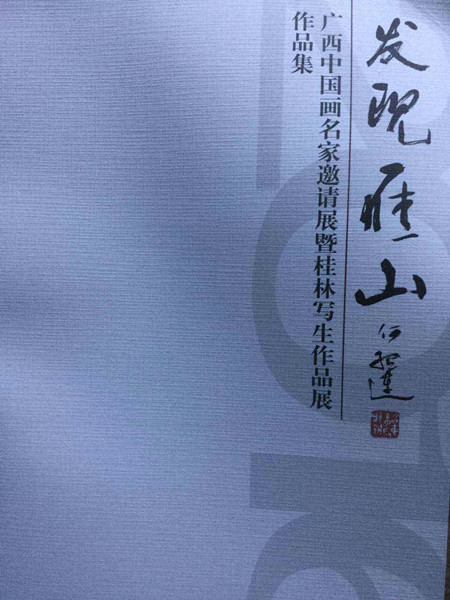 发现雁山
广西中国画名家邀请展暨桂林写生作品展
作品集